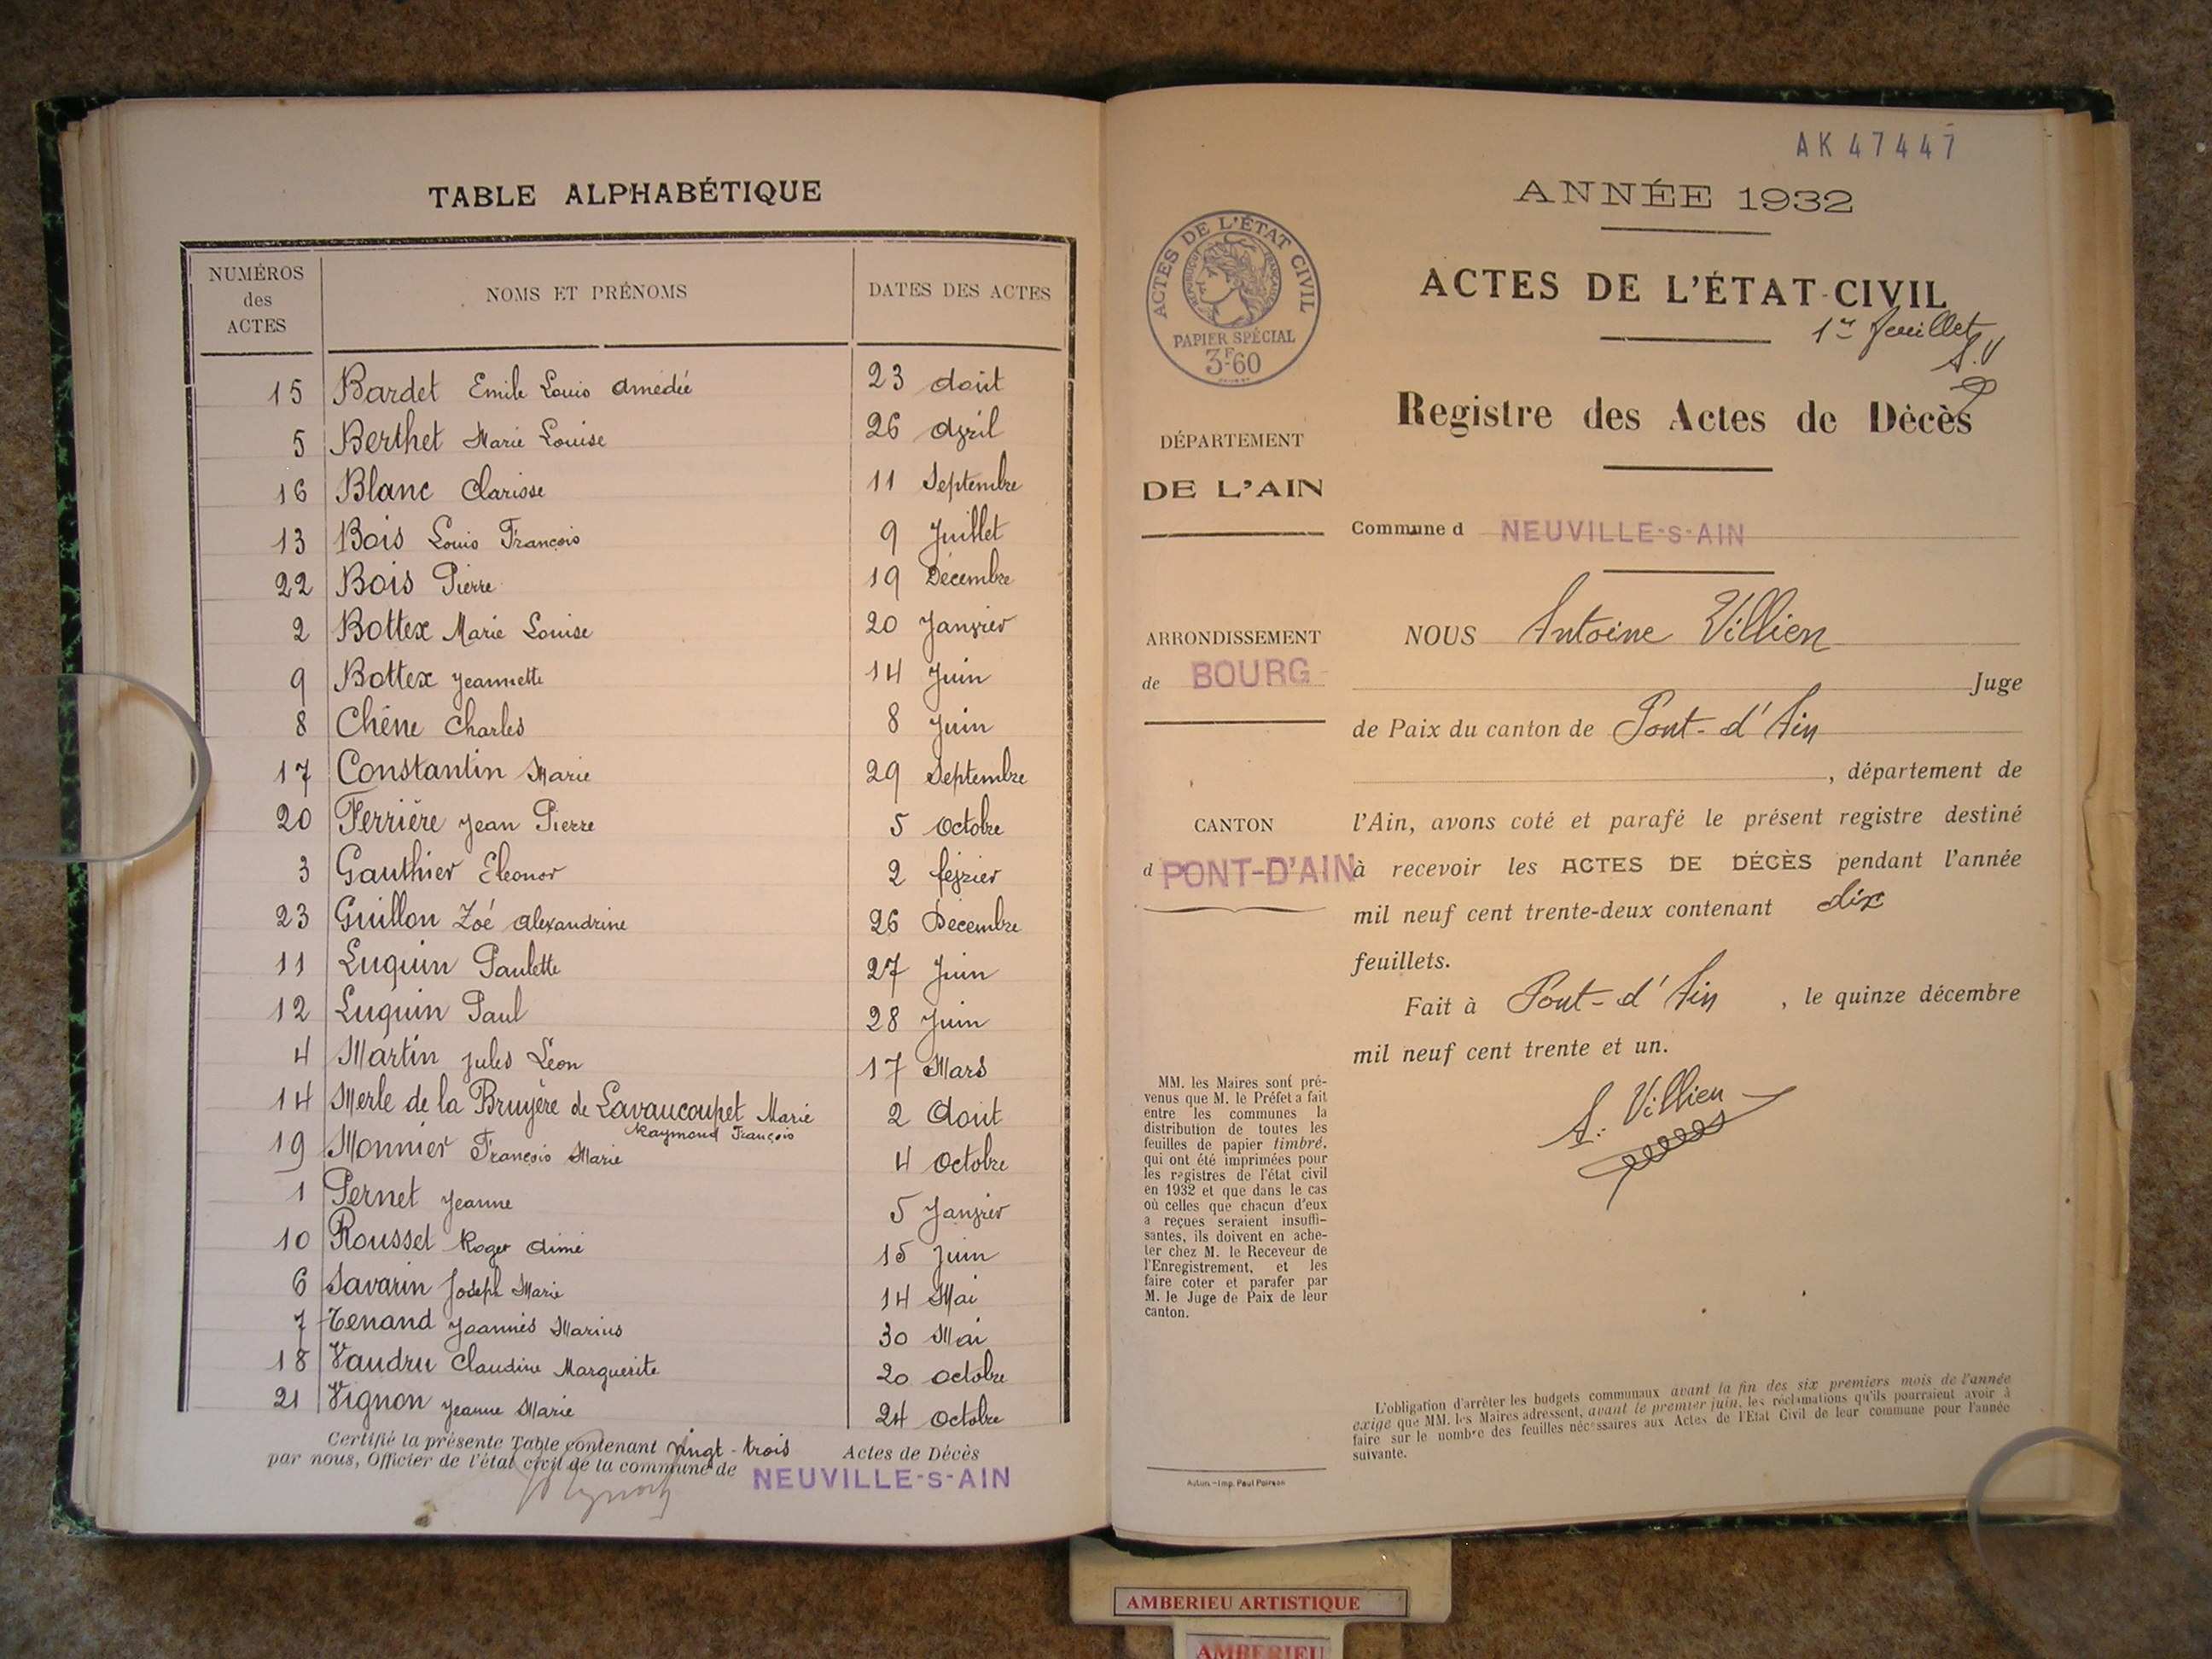 TABLE ALPHABÉTIQUE
NUMÉROS des ACTES NOMS ET PRÉNOMS DATES DES ACTES
15 Bardet Emile Louis Amédée 23 Août
5 Berthet Marie Louise 26 Avril
16 Blanc Clarisse 11 Septembre
13 Bois Louis François 9 Juillet
22 Bois Pierre 19 Décembre
2 Bottex Marie Louise 20 Janvier
9 Bottex Jeannette 14 Juin
8 Chêne Charles 8 Juin
17 Constantin Marie 29 Septembre
20 Ferrière Jean Pierre 5 Octobre
3 Gauthier Eleonor 2 février
23 Guillon Zoé Alexandrine 26 Décembre
11 Luquin Paulette 27 Juin
12 Luquin Paul 28 Juin
4 Martin Jules Léon 17 Mars
14 Merle de la Bruyère de Lavaucoupet Marie 2 Août
Raymond François
19 Monnier François Marie 4 Octobre
1 Pernet Jeanne 5 Janvier
10 Rousset Roger Aimé 15 Juin
6 Savarin Joseph Marie 14 Mai
7 Tenand Joannès Marius 30 Mai
18 Vaudru Claudine Marguerite 20 Octobre
21 Vignon Jeanne Marie 24 Octobre
Certifié la présente Table contenant vingt-trois Actes de Décès
par nous, Officier de l'état civil de la commune de NEUVILLE-s-AIN
AK 47447
ANNÉE 1932
ACTES DE L'ÉTAT-CIVIL
1er feuillet
A.V
Registre des Actes de Décès
ACTES DE L'ÉTAT CIVIL
RÉPUBLIQUE FRANÇAISE
PAPIER SPÉCIAL
3F60
DÉPARTEMENT
DE L'AIN
ARRONDISSEMENT
de BOURG
CANTON
d PONT-D'AIN
MM. les Maires sont pré-
venus que M. le Préfet a fait
entre les communes la
distribution de toutes les
feuilles de papier timbré.
qui ont été imprimées pour
les registres de l'état civil
en 1932 et que dans le cas
où celles que chacun d'eux
a reçues seraient insuffi-
santes, ils doivent en ache-
ter chez M. le Receveur de
l'Enregistrement, et les
faire coter et parafer par
M. le Juge de Paix de leur
canton.
Autun. - Imp. Paul Poirson
Commune d NEUVILLE-s-AIN
NOUS Antoine Villien
Juge
de Paix du canton de Pont-d'Ain
, département de
l'Ain, avons coté et parafé le présent registre destiné
à recevoir les ACTES DE DÉCÈS pendant l'année
mil neuf cent trente-deux contenant dix
feuillets.
Fait à Pont-d'Ain , le quinze décembre
mil neuf cent trente et un.
A. Villien
L'obligation d'arrêter les budgets communaux avant la fin des six premiers mois de l'année
exige que MM. les Maires adressent, avant le premier juin, les réclamations qu'ils pourraient avoir à
faire sur le nombre des feuilles nécessaires aux Actes de l'Etat Civil de leur commune pour l'année
suivante.
AMBERIEU ARTISTIQUE
AMBERIEU